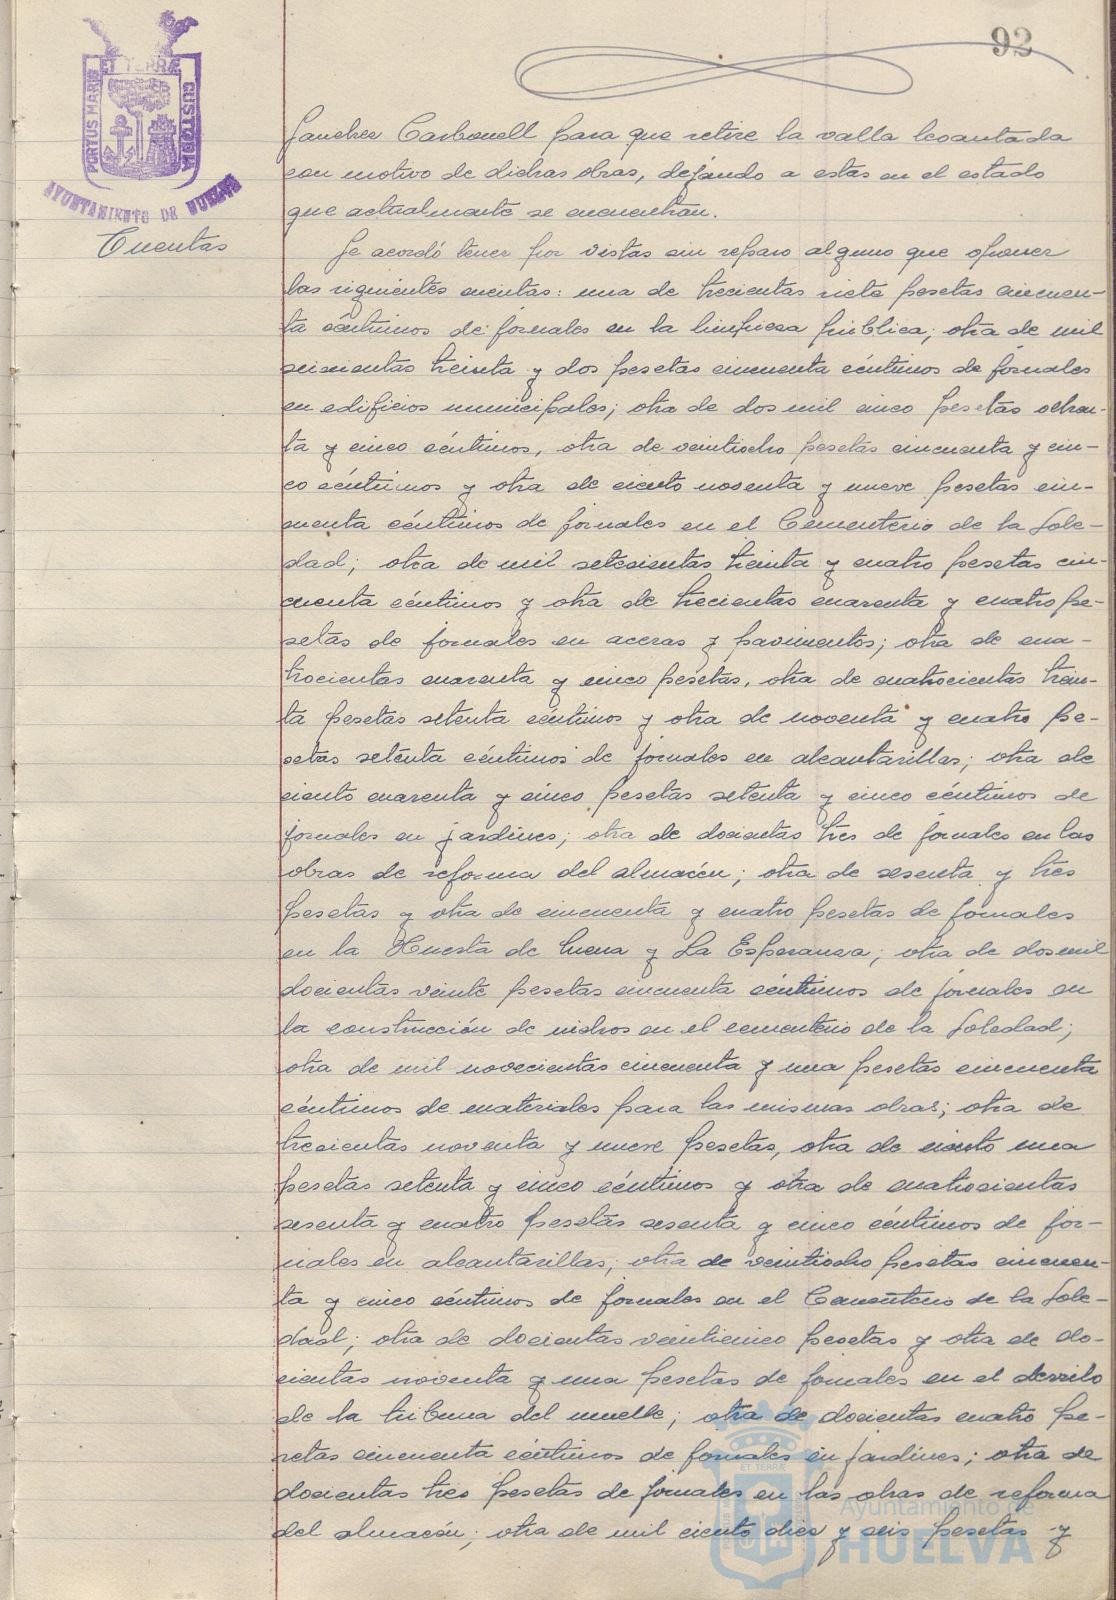 92
PORTUS MARIS ET TERRÆ CUSTODIA
AYUNTAMIENTO DE HUELVA
Sanchez Carbonell para que retire la valla levantada
con motivo de dichas obras, dejando a estas en el estado
que actualmente se encuentran.
Cuentas
Se acordó tener por vistas sin reparo alguno que oponer
las siguientes cuentas: una de trecientas siete pesetas cincuen-
ta céntimos de jornales en la limpieza pública; otra de mil
seiscientas treinta y dos pesetas cincuenta céntimos de jornales
en edificios municipales; otra de dos mil cinco pesetas ochen-
ta y cinco céntimos, otra de veintiocho pesetas cincuenta y cin-
co céntimos y otra de ciento noventa y nueve pesetas cin-
cuenta céntimos de jornales en el Cementerio de la Sole-
dad; otra de mil setecientas treinta y cuatro pesetas cin-
cuenta céntimos y otra de trecientas cuarenta y cuatro pe-
setas de jornales en aceras y pavimentos; otra de cua-
trocientas cuarenta y cinco pesetas, otra de cuatrocientas trein-
ta pesetas setenta céntimos y otra de noventa y cuatro pe-
setas setenta céntimos de jornales en alcantarillas; otra de
ciento cuarenta y cinco pesetas setenta y cinco céntimos de
jornales en jardines; otra de docientas tres de jornales en las
obras de reforma del almacén; otra de sesenta y tres
pesetas y otra de cincuenta y cuatro pesetas de jornales
en la Huerta de Mena y La Esperanza; otra de dos mil
docientas veinte pesetas cincuenta céntimos de jornales en
la construcción de nichos en el cementerio de la Soledad;
otra de mil novecientas cincuenta y una pesetas cincuenta
céntimos de materiales para las mismas obras; otra de
trecientas noventa y nueve pesetas, otra de ciento una
pesetas setenta y cinco céntimos y otra de cuatrocientas
sesenta y cuatro pesetas sesenta y cinco céntimos de jor-
nales en alcantarillas; otra de veintiocho pesetas cincuen-
ta y cinco céntimos de jornales en el Cementerio de la Sole-
dad; otra de docientas veinticinco pesetas y otra de do-
cientas noventa y una pesetas de jornales en el derribo
de la tribuna del muelle; otra de docientas cuatro pe-
setas cincuenta céntimos de jornales en jardines; otra de
docientas tres pesetas de jornales en las obras de reforma
del almacén; otra de mil ciento diez y seis pesetas y
Ayuntamiento de
HUELVA